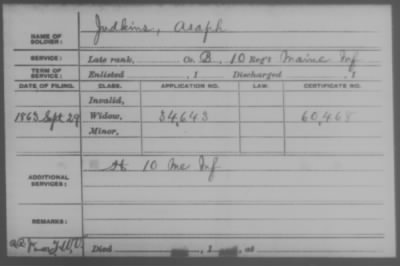 Judkins, Asaph
NAME OF SOLDIER:
SERVICE: Late rank, Co. B, 10 Reg't Maine Inf
TERM OF SERVICE: Enlisted , 1 Discharged , 1
DATE OF FILING. CLASS. APPLICATION NO. LAW. CERTIFICATE NO.
Invalid,
1863 Sept 29 Widow, 34,643 60,468
Minor,
ADDITIONAL SERVICES: 10 Me Inf
REMARKS:
Died , 1 , at